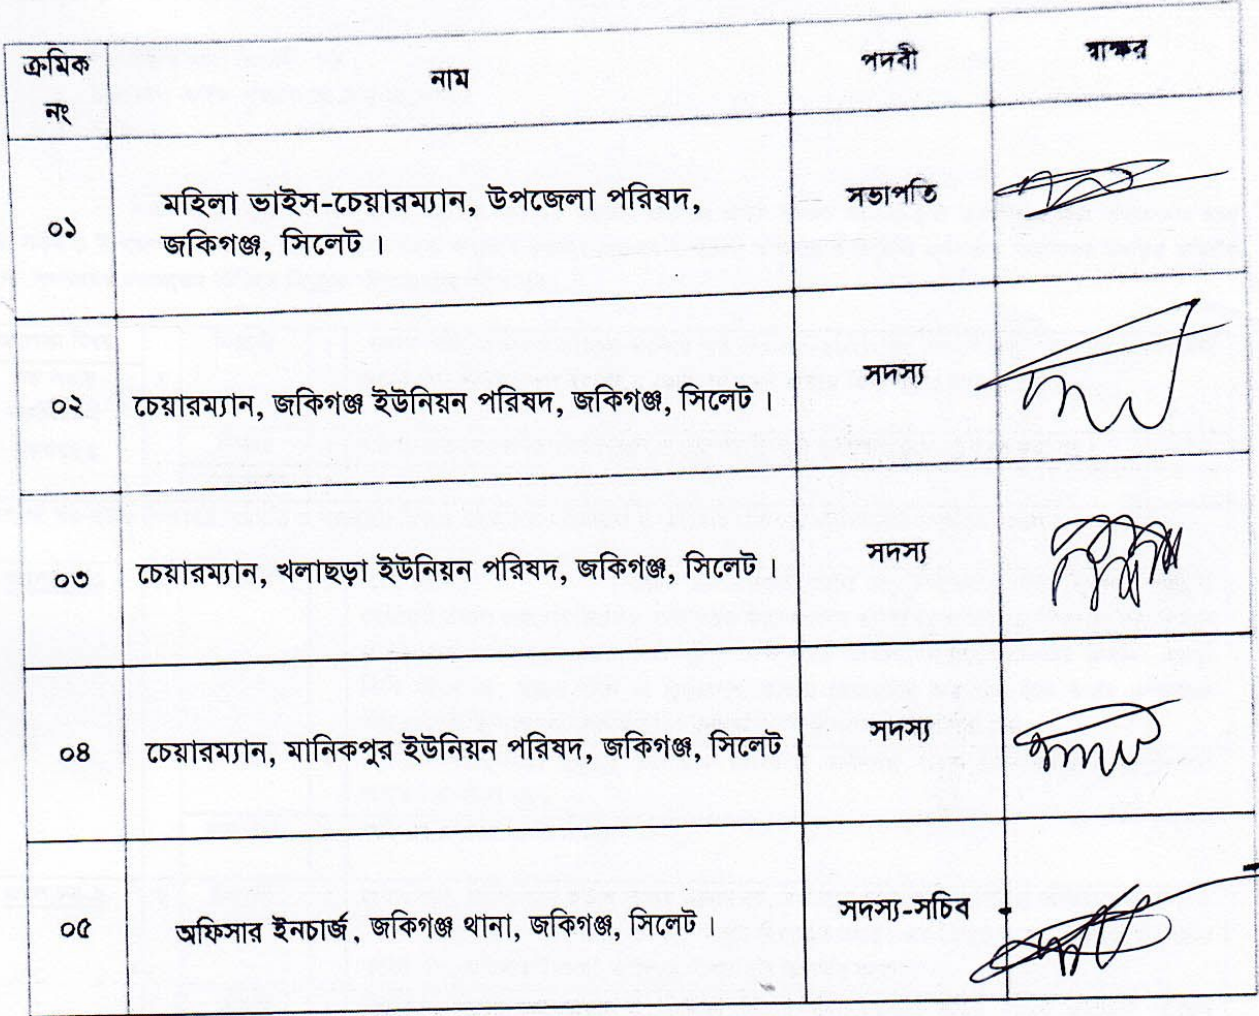 ক্রমিক নং নাম পদবী স্বাক্ষর
০১ মহিলা ভাইস-চেয়ারম্যান, উপজেলা পরিষদ, সভাপতি
জকিগঞ্জ, সিলেট।
০২ চেয়ারম্যান, জকিগঞ্জ ইউনিয়ন পরিষদ, জকিগঞ্জ, সিলেট। সদস্য
০৩ চেয়ারম্যান, খলাছড়া ইউনিয়ন পরিষদ, জকিগঞ্জ, সিলেট। সদস্য
০৪ চেয়ারম্যান, মানিকপুর ইউনিয়ন পরিষদ, জকিগঞ্জ, সিলেট। সদস্য
০৫ অফিসার ইনচার্জ, জকিগঞ্জ থানা, জকিগঞ্জ, সিলেট। সদস্য-সচিব